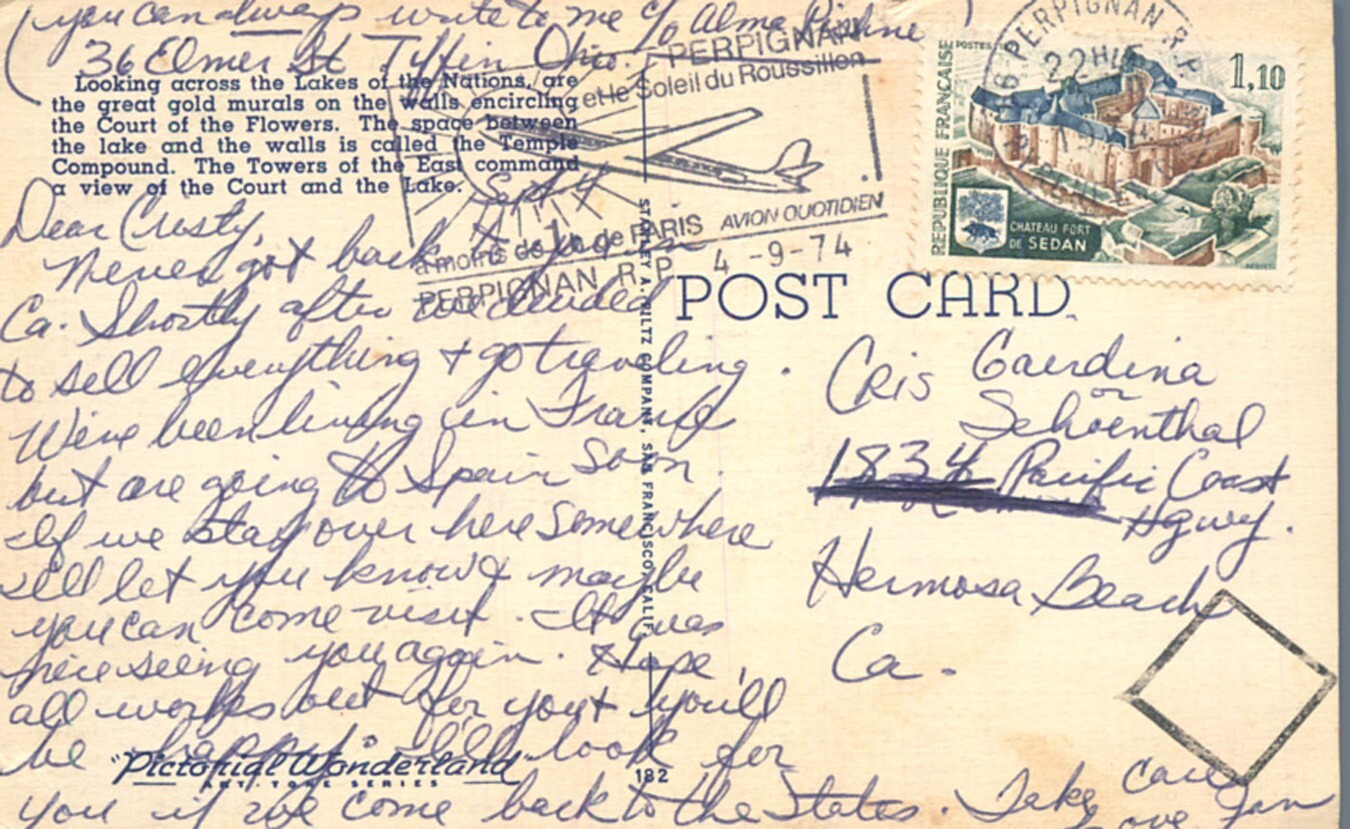 (you can always write to me c/o Alma
36 Elmer St Tiffin Ohio.)
Looking across the Lakes of the Nations, are
the great gold murals on the walls encircling
the Court of the Flowers. The space between
the lake and the walls is called the Temple
Compound. The Towers of the East command
a view of the Court and the Lake.
Sept 4
Dear Cristy,
Never got back to you in
Ca. Shortly after we decided
to sell everything + go traveling.
We've been living in France
but are going to Spain soon.
If we stay over here somewhere
I'll let you know & maybe
you can come visit. It was
nice seeing you again. Hope
all works out for you + you'll
be happy. I'll look for
you if we come back to the States. Take care
Love, Jan
"Pictorial Wonderland"
ART-TONE SERIES
182
STANLEY A. PILTZ COMPANY, SAN FRANCISCO, CALIF.
PERPIGNAN
et le Soleil du Roussillon
à moins de 1h de PARIS AVION QUOTIDIEN
PERPIGNAN R.P 4-9-74
66 PERPIGNAN R.P.
22H
POSTES
1,10
REPUBLIQUE FRANÇAISE
CHATEAU FORT
DE SEDAN
POST CARD
Cris Gaerdina
or
Schoenthal
1834 Pacific Coast
Hgwy.
Hermosa Beach
Ca.